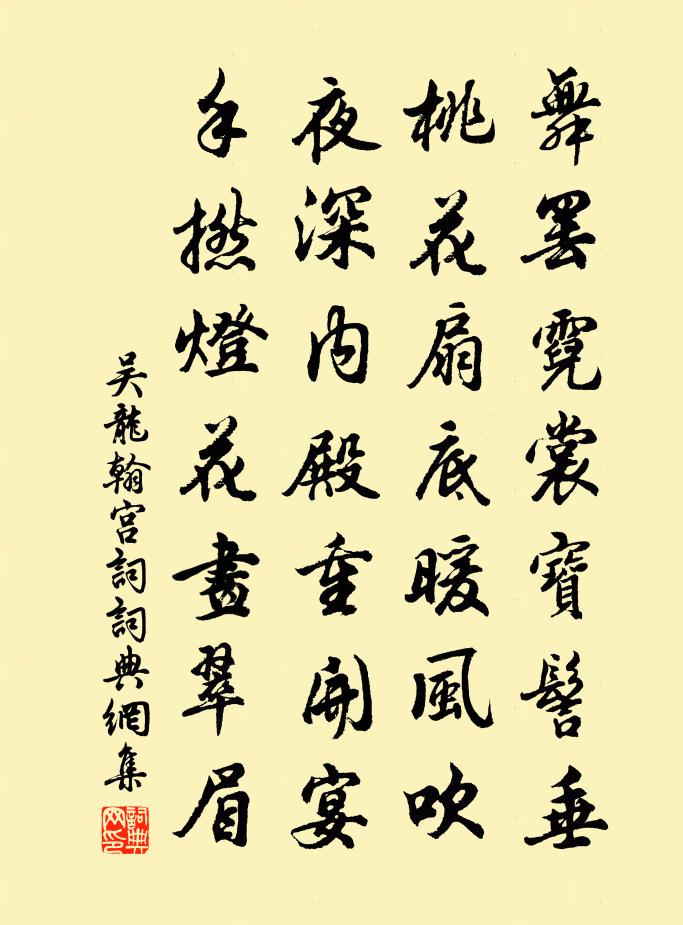 舞罷霓裳寶髻垂
桃花扇底暖風吹
夜深内殿重開宴
手撚燈花畫翠眉
吳龍翰宮詞詞典網集
詞典網印